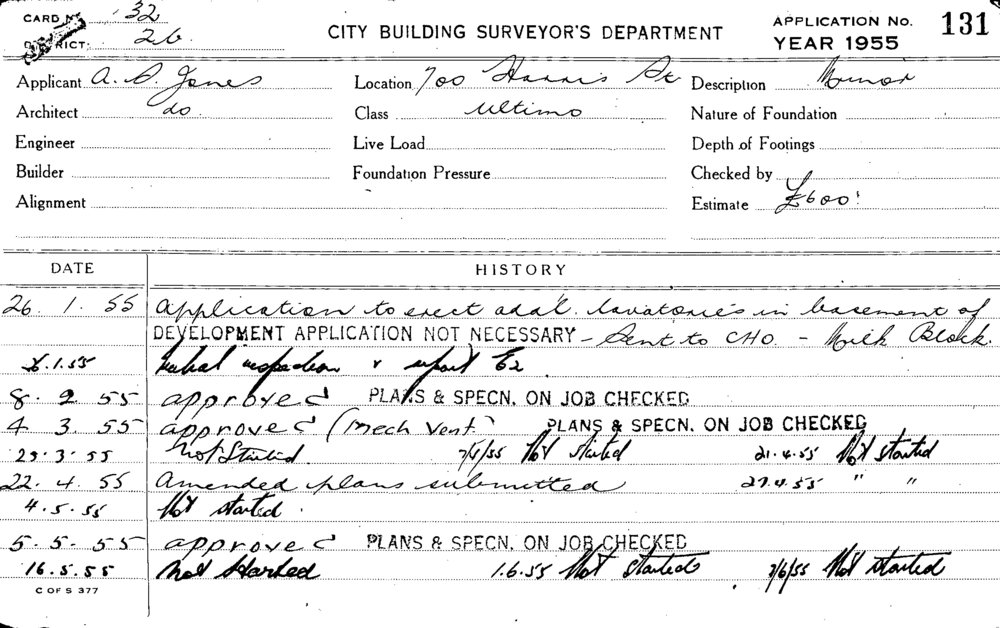 CARD No 32
DISTRICT: 26
CITY BUILDING SURVEYOR'S DEPARTMENT
APPLICATION No. 131
YEAR 1955
Applicant A. D. Jones Location 700 Harris St Description Minor
Architect do. Class Ultimo Nature of Foundation
Engineer Live Load Depth of Footings
Builder Foundation Pressure Checked by
Alignment Estimate £600
DATE HISTORY
26. 1. 55 Application to erect addl. lavatories in basement of
DEVELOPMENT APPLICATION NOT NECESSARY - Sent to CHO. - Milk Block.
1.55 Initial inspection & report
8. 2 55 approved PLANS & SPECN. ON JOB CHECKED
4 3. 55 approved (Mech Vent.) PLANS & SPECN. ON JOB CHECKED
29.3.55 Not Started. /55 Not started 21.4.55 Not started
22. 4. 55 Amended plans submitted 27.4.55 " "
4.5.55 Not started.
5.5.55 approved PLANS & SPECN. ON JOB CHECKED
16.5.55 Not started 1.6.55 Not started /6/55 Not started
C OF S 377